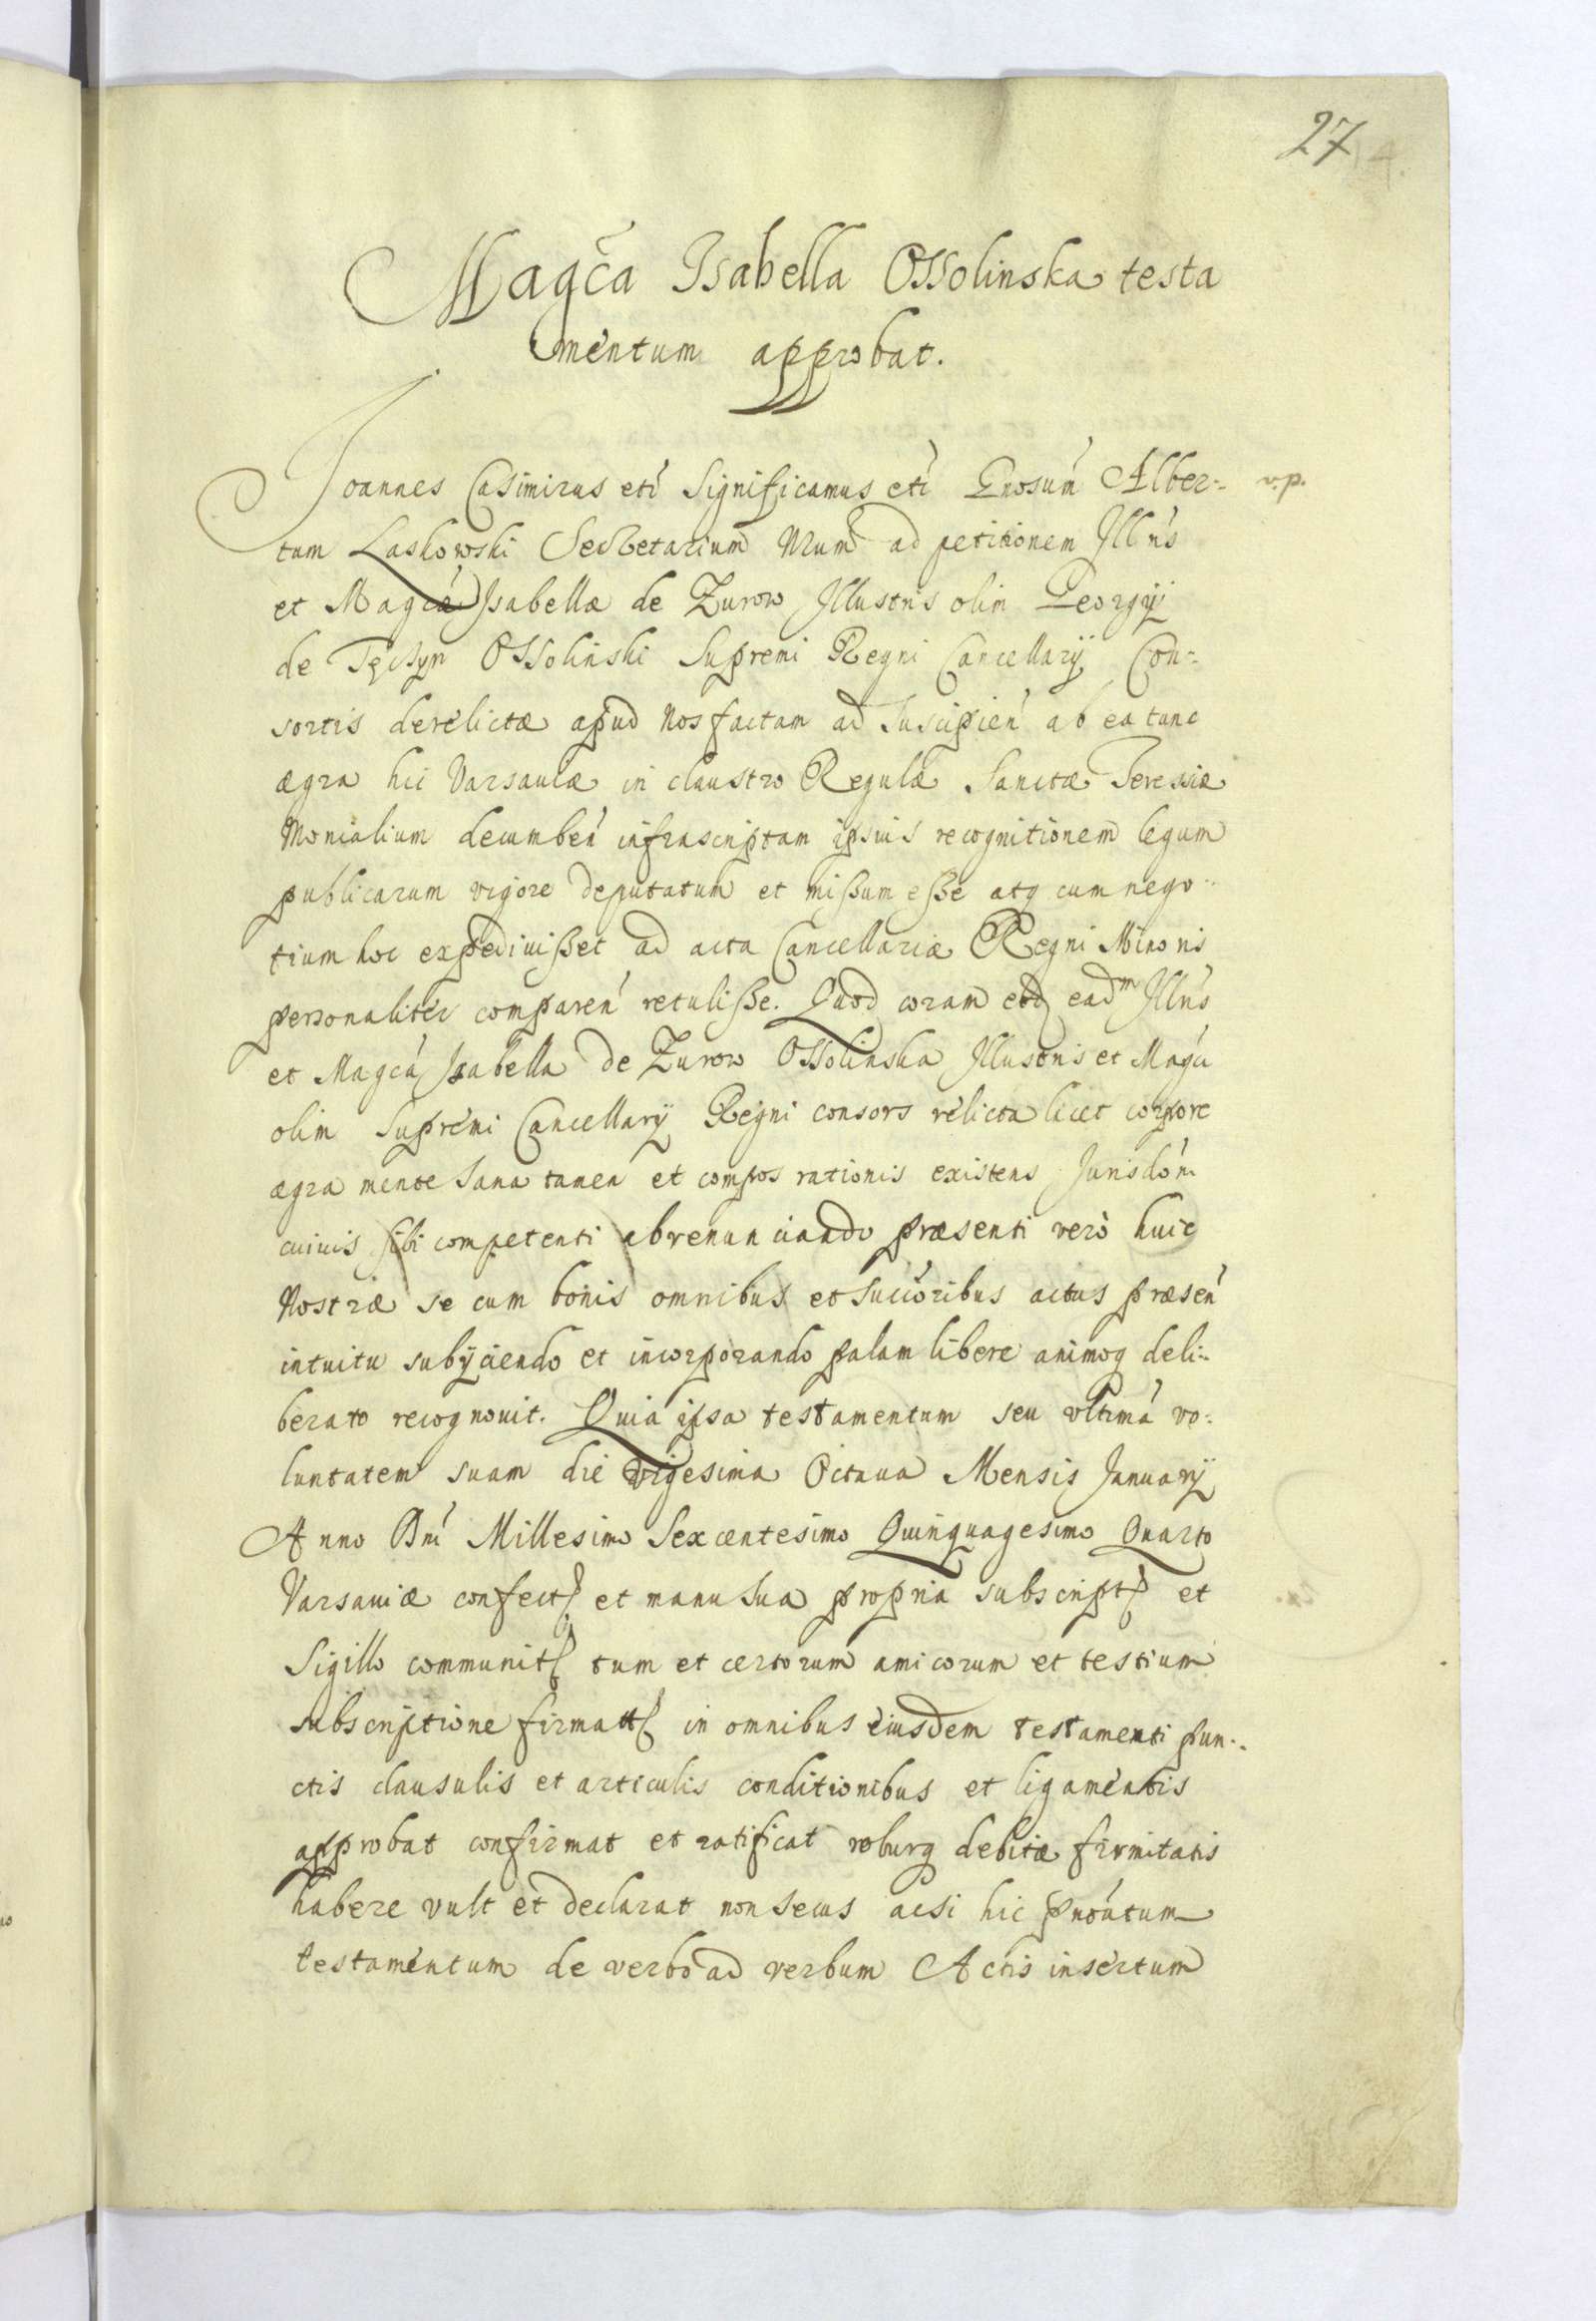 27
Magća Isabella Ossolinska testa
mentum approbat.
Joannes Casimirus etć Significamus etć Gnosum Alber=
v.p.
tum Laskowski Secretarium Nrum ad petitionem Illris
et Magća Isabellæ de Zurow Illustris olim Georgij
de Tęczyn Ossolinski Supremi Regni Cancellarij Con=
sortis derelictæ apud Nos factam ad Suscipień ab ea tunc
ægra hic Varsauiæ in claustro Regulæ Sanctæ Teressiæ
Monialium decumbeń infrascriptam ipsius recognitionem legum
publicarum vigore deputatum et missum esse atq cum nego=
tium hoc expediuisset ad acta Cancellariæ Regni Minoris
personaliter compareń retulisse. Quod coram eod eadm Illris
et Magća Isabella de Zurow Ossolinska Illustris et Magći
olim Supremi Cancellarij Regni consors relicta licet corpore
ægra mente Sana tamen et compos rationis existens Jurisdóni
cuiuis sibi competenti abrenunciando præsenti verò huic
Nostræ se cum bonis omnibus et succoribus actus præseń
intuitu subijciendo et incorporando palam libere animoq deli=
berato recognouit. Quia ipsa testamentum seu vltimá vo=
luntatem suam die vigesima Octaua Mensis Januarij
Anno Dni Millesimo Sexcentesimo Quinquagesimo Quarto
Varsauiæ confect et manu Sua propria subscript et
Sigillo communit tum et certorum amicorum et testium
subscriptione firmat in omnibus eiusdem testamenti pun=
ctis clausulis et articulis conditionibus et ligamentis
approbat confirmat et ratificat roburq debitæ firmitatis
habere vult et declarat non secus acsi hic pnótatum
testamentum de verbo ad verbum Actis insertum